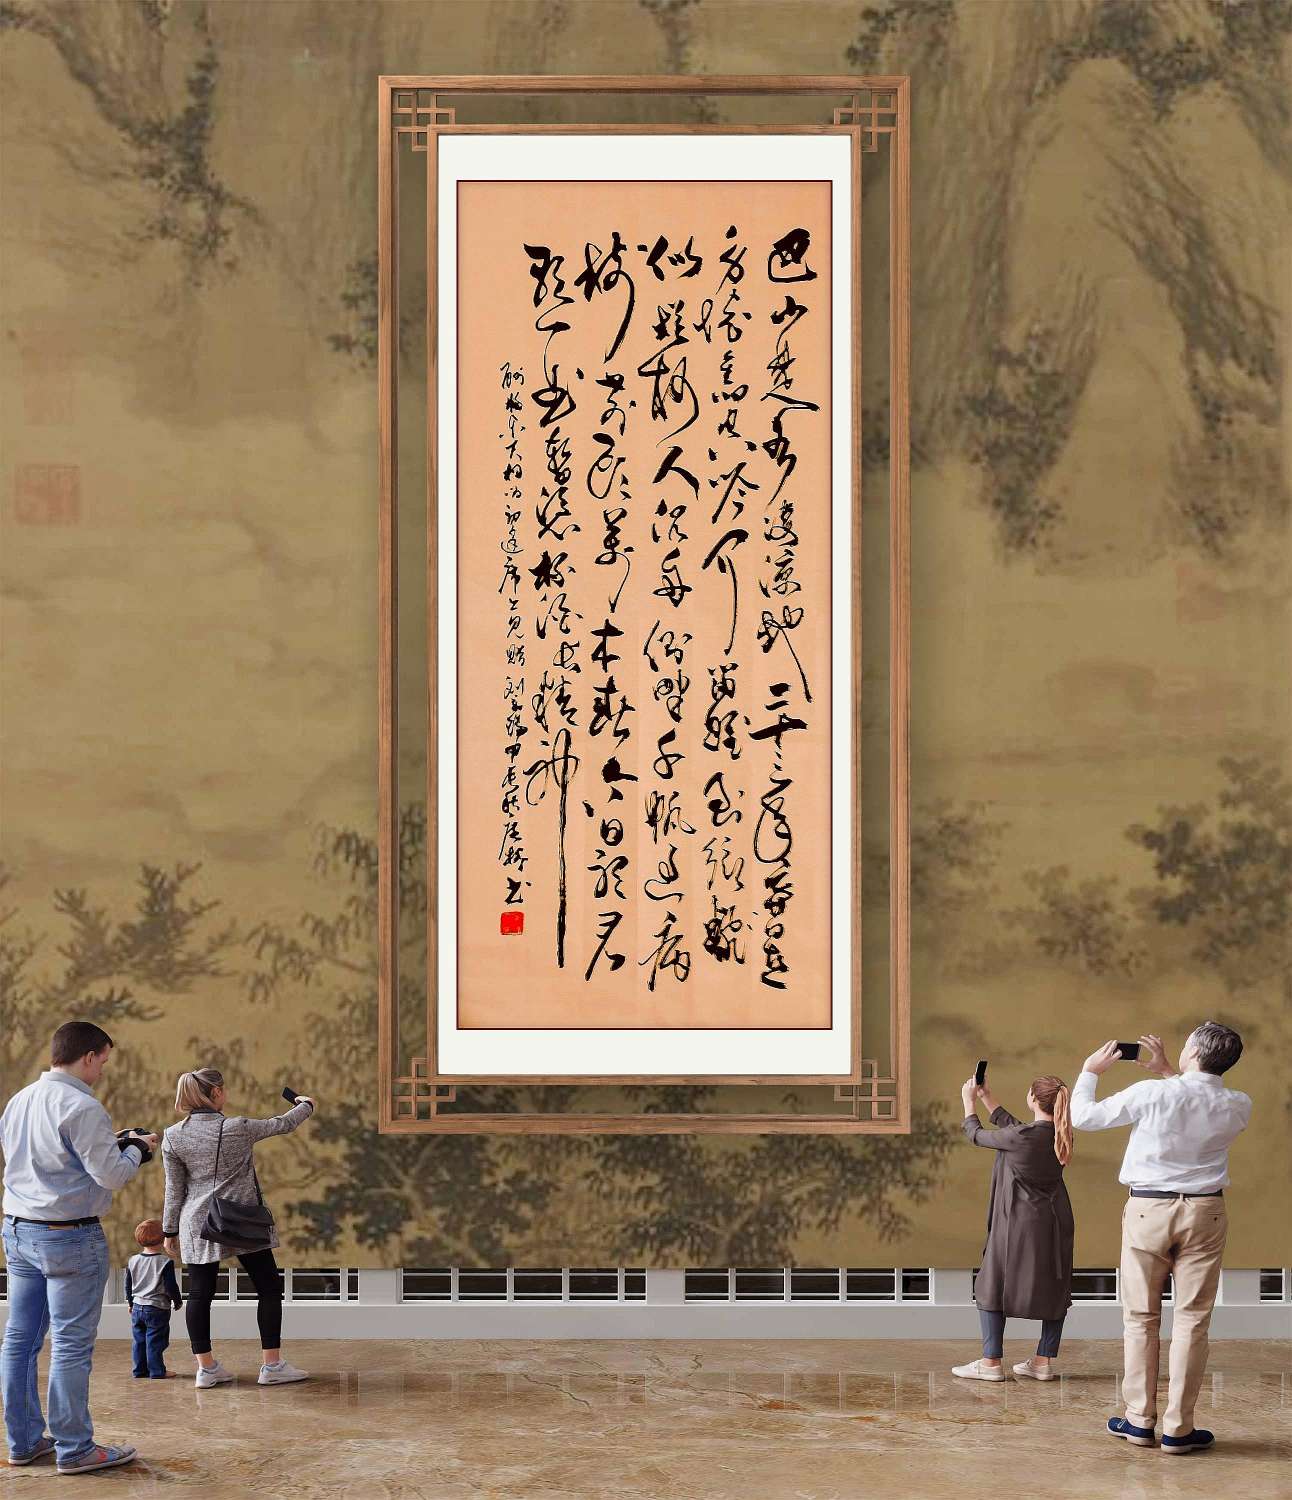 巴山楚水凄涼地二十三年棄置
身懷舊空吟聞笛賦到鄉翻
似爛柯人沉舟側畔千帆過病
樹前頭萬木春今日聽君
歌一曲暫憑杯酒長精神
酬樂天揚州初逢席上見贈 劉禹錫 甲辰秋 書